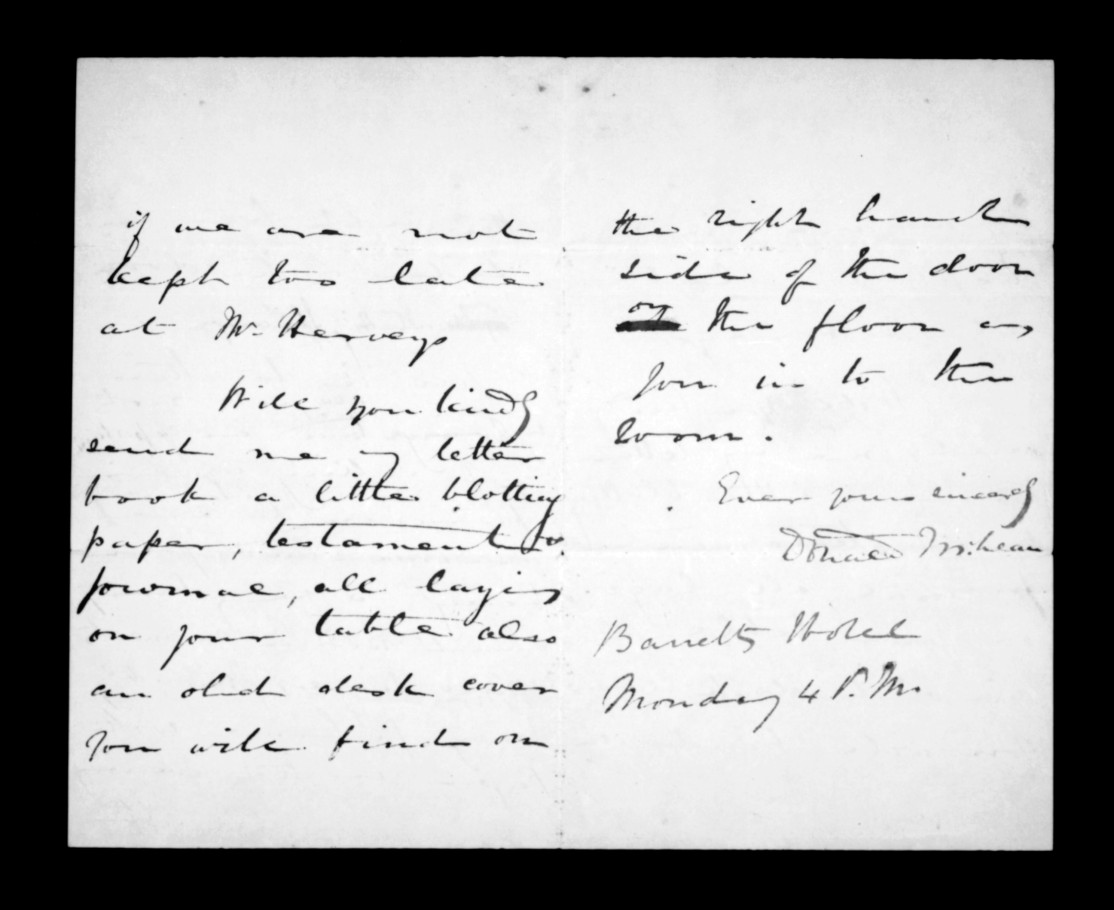 if we are not
kept too late
at Mr Herveys
Will you kindly
send me my letter
book a little blotting
paper, testament &
journal, all laying
on your table also
an old desk cover
you will find on
the right hand
side of the door
on the floor as
you in to the
room.
Ever yours sincerely
Donald McLean
Barretts Hotel
Monday 4 P.M.